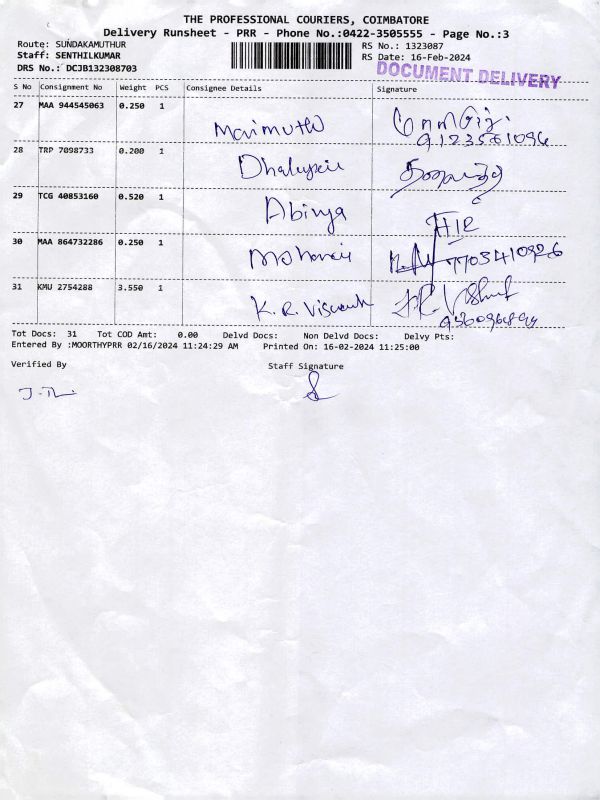 THE PROFESSIONAL COURIERS, COIMBATORE
Delivery Runsheet - PRR - Phone No.:0422-3505555 - Page No.:3
Route: SUNDAKAMUTHUR RS No.: 1323087
Staff: SENTHILKUMAR RS Date: 16-Feb-2024
DRS No.: DCJB132308703 DOCUMENT DELIVERY
S No Consignment No Weight PCS Consignee Details Signature
27 MAA 944545063 0.250 1 Marimuthu
28 TRP 7098733 0.200 1
29 TCG 40853160 0.520 1 Abinya
30 MAA 864732286 0.250 1 Mohanraj
31 KMU 2754288 3.550 1 K.R. Viswanth
Tot Docs: 31 Tot COD Amt: 0.00 Delvd Docs: Non Delvd Docs: Delvy Pts:
Entered By :MOORTHYPRR 02/16/2024 11:24:29 AM Printed On: 16-02-2024 11:25:00
Verified By Staff Signature